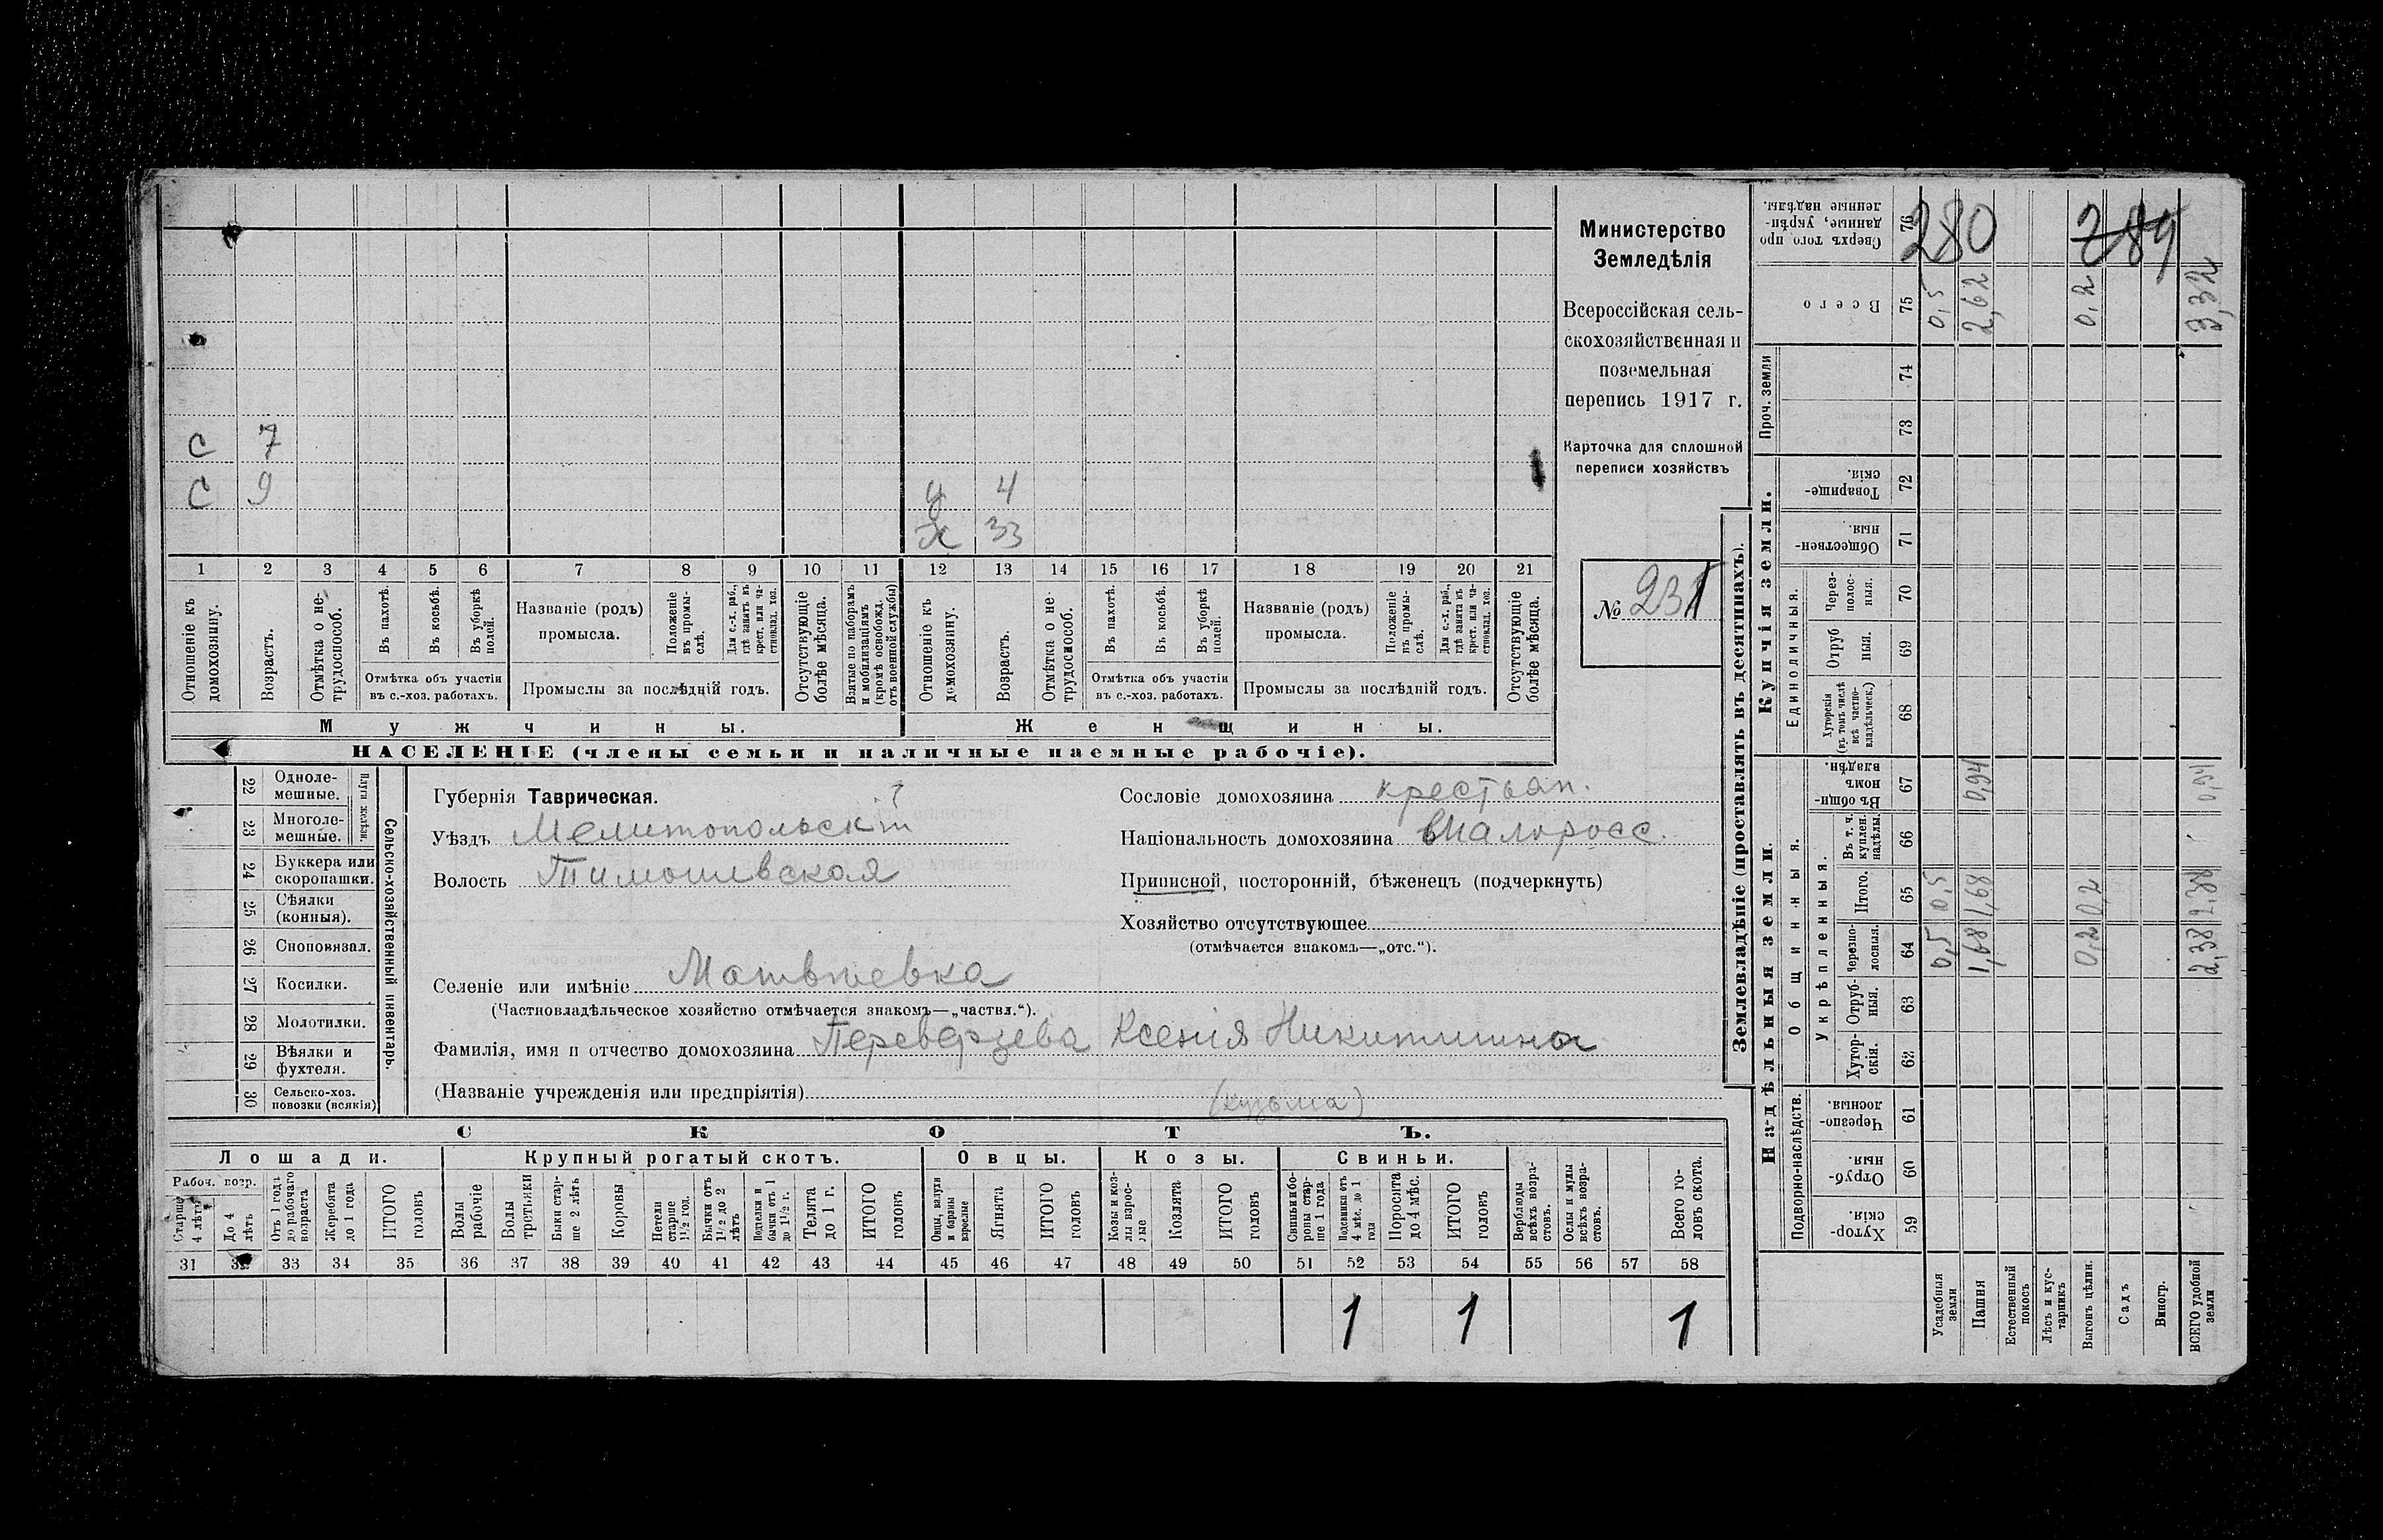 Министерство
Земледѣлія
Всероссійская сель-
скохозяйственная и
поземельная
перепись 1917 г.
Карточка для сплошной
переписи хозяйствъ
№ 231
С 7
С 9
4
Ж 33
1 2 3 4 5 6 7 8 9 10 11 12 13 14 15 16 17 18 19 20 21
Отношеніе къ домохозяину.
Возрастъ.
Отмѣтка о не-трудоспособ.
Въ пахотѣ.
Въ косьбѣ.
Въ уборкѣ полей.
Отмѣтка объ участіи
въ с.-хоз. работахъ.
Названіе (родъ)
промысла.
Положеніе въ промы-слѣ.
Для с.-х. раб., гдѣ занятъ въ крест. или ча-стновлад. хоз.
Промыслы за послѣдній годъ.
Отсутствующіе болѣе мѣсяца.
Взятые по наборамъ и мобилизаціямъ (кромѣ освобожд. отъ военной службы)
Отношеніе къ домохозяину.
Возрастъ.
Отмѣтка о не-трудоспособ.
Въ пахотѣ.
Въ косьбѣ.
Въ уборкѣ полей.
Отмѣтка объ участіи
въ с.-хоз. работахъ.
Названіе (родъ)
промысла.
Положеніе въ промы-слѣ.
Для с.-х. раб., гдѣ занята въ крест. или ча-стновлад. хоз.
Промыслы за послѣдній годъ.
Отсутствующіе болѣе мѣсяца.
Мужчины. Женщины.
НАСЕЛЕНІЕ (члены семьи и наличные наемные рабочіе).
Сельско-хозяйственный инвентарь.
Плуги желѣзн.
22 Одноле-мешные.
23 Многоле-мешные.
24 Буккера или скоропашки.
25 Сѣялки (конныя).
26 Сноповязал.
27 Косилки.
28 Молотилки.
29 Вѣялки и фухтеля.
30 Сельско-хоз. повозки (всякія)
Губернія Таврическая.
Уѣздъ Мелитопольскій
Волость Тимошевская
Селеніе или имѣніе Матвѣевка
(Частновладѣльческое хозяйство отмѣчается знакомъ—„частвл.“).
Фамилія, имя и отчество домохозяина Переверзева Ксенія Никитишна
(Названіе учрежденія или предпріятія) (кузьма)
Сословіе домохозяина крестьян.
Національность домохозяина Малоросс.
Приписной, посторонній, бѣженецъ (подчеркнуть)
Хозяйство отсутствующее
(отмѣчается знакомъ—„отс.“).
СКОТЪ.
Лошади. Крупный рогатый скотъ. Овцы. Козы. Свиньи.
Рабоч. возр.
Старше 4 лѣтъ
До 4 лѣтъ
Отъ 1 года до рабочаго возраста
Жеребята до 1 года
ИТОГО головъ
Волы рабочіе
Волы третьяки
Быки стар-ше 2 лѣтъ
Коровы
Нетели старше 1½ год.
Бычки отъ 1½ до 2 лѣтъ
Подтелки и бычки отъ 1 до 1½ г.
Телята до 1 г.
ИТОГО головъ
Овцы, валухи и бараны взрослые
Ягнята
ИТОГО головъ
Козы и коз-лы взрос-лые
Козлята
ИТОГО головъ
Свиньи и бо-ровы стар-ше 1 года
Подсвинки отъ 4 мѣс. до 1 года
Поросята до 4 мѣс.
ИТОГО головъ
Верблюды всѣхъ возра-стовъ.
Ослы и мулы всѣхъ возра-стовъ.
Всего го-ловъ скота.
31 32 33 34 35 36 37 38 39 40 41 42 43 44 45 46 47 48 49 50 51 52 53 54 55 56 57 58
1 1 1
Землевладѣніе (проставлять въ десятинахъ).
Надѣльныя земли. Купчія земли. Проч. земли
Подворно-наслѣдств.
Общинныя.
Укрѣпленныя.
Единоличныя.
Хутор-скія. 59
Отруб-ныя. 60
Черезпо-лосныя. 61
Хутор-скія. 62
Отруб-ныя. 63
Черезпо-лосныя. 64
Итого. 65
Въ т. ч. куплен. надѣлы. 66
Въ общи-номъ владѣн. 67
Хуторскія (въ томъ числѣ всѣ частно-владѣльческ.) 68
Отруб ныя. 69
Через-полос-ныя. 70
Обществен-ныя. 71
Товарище-скія. 72
73
74
Всего 75
Сверхъ того про данные, укрѣп-ленные надѣлы. 76
280 289
Усадебныя земли 0,5 0,5 0,5
Пашня 1,68 1,68 0,94 2,62
Естественный покосъ
Лѣсъ и кус-тарникъ
Выгонъ цѣлин. 0,2 0,2 0,2
Садъ
Виногр.
ВСЕГО удобной земли 2,38 2,38 0,94 3,32